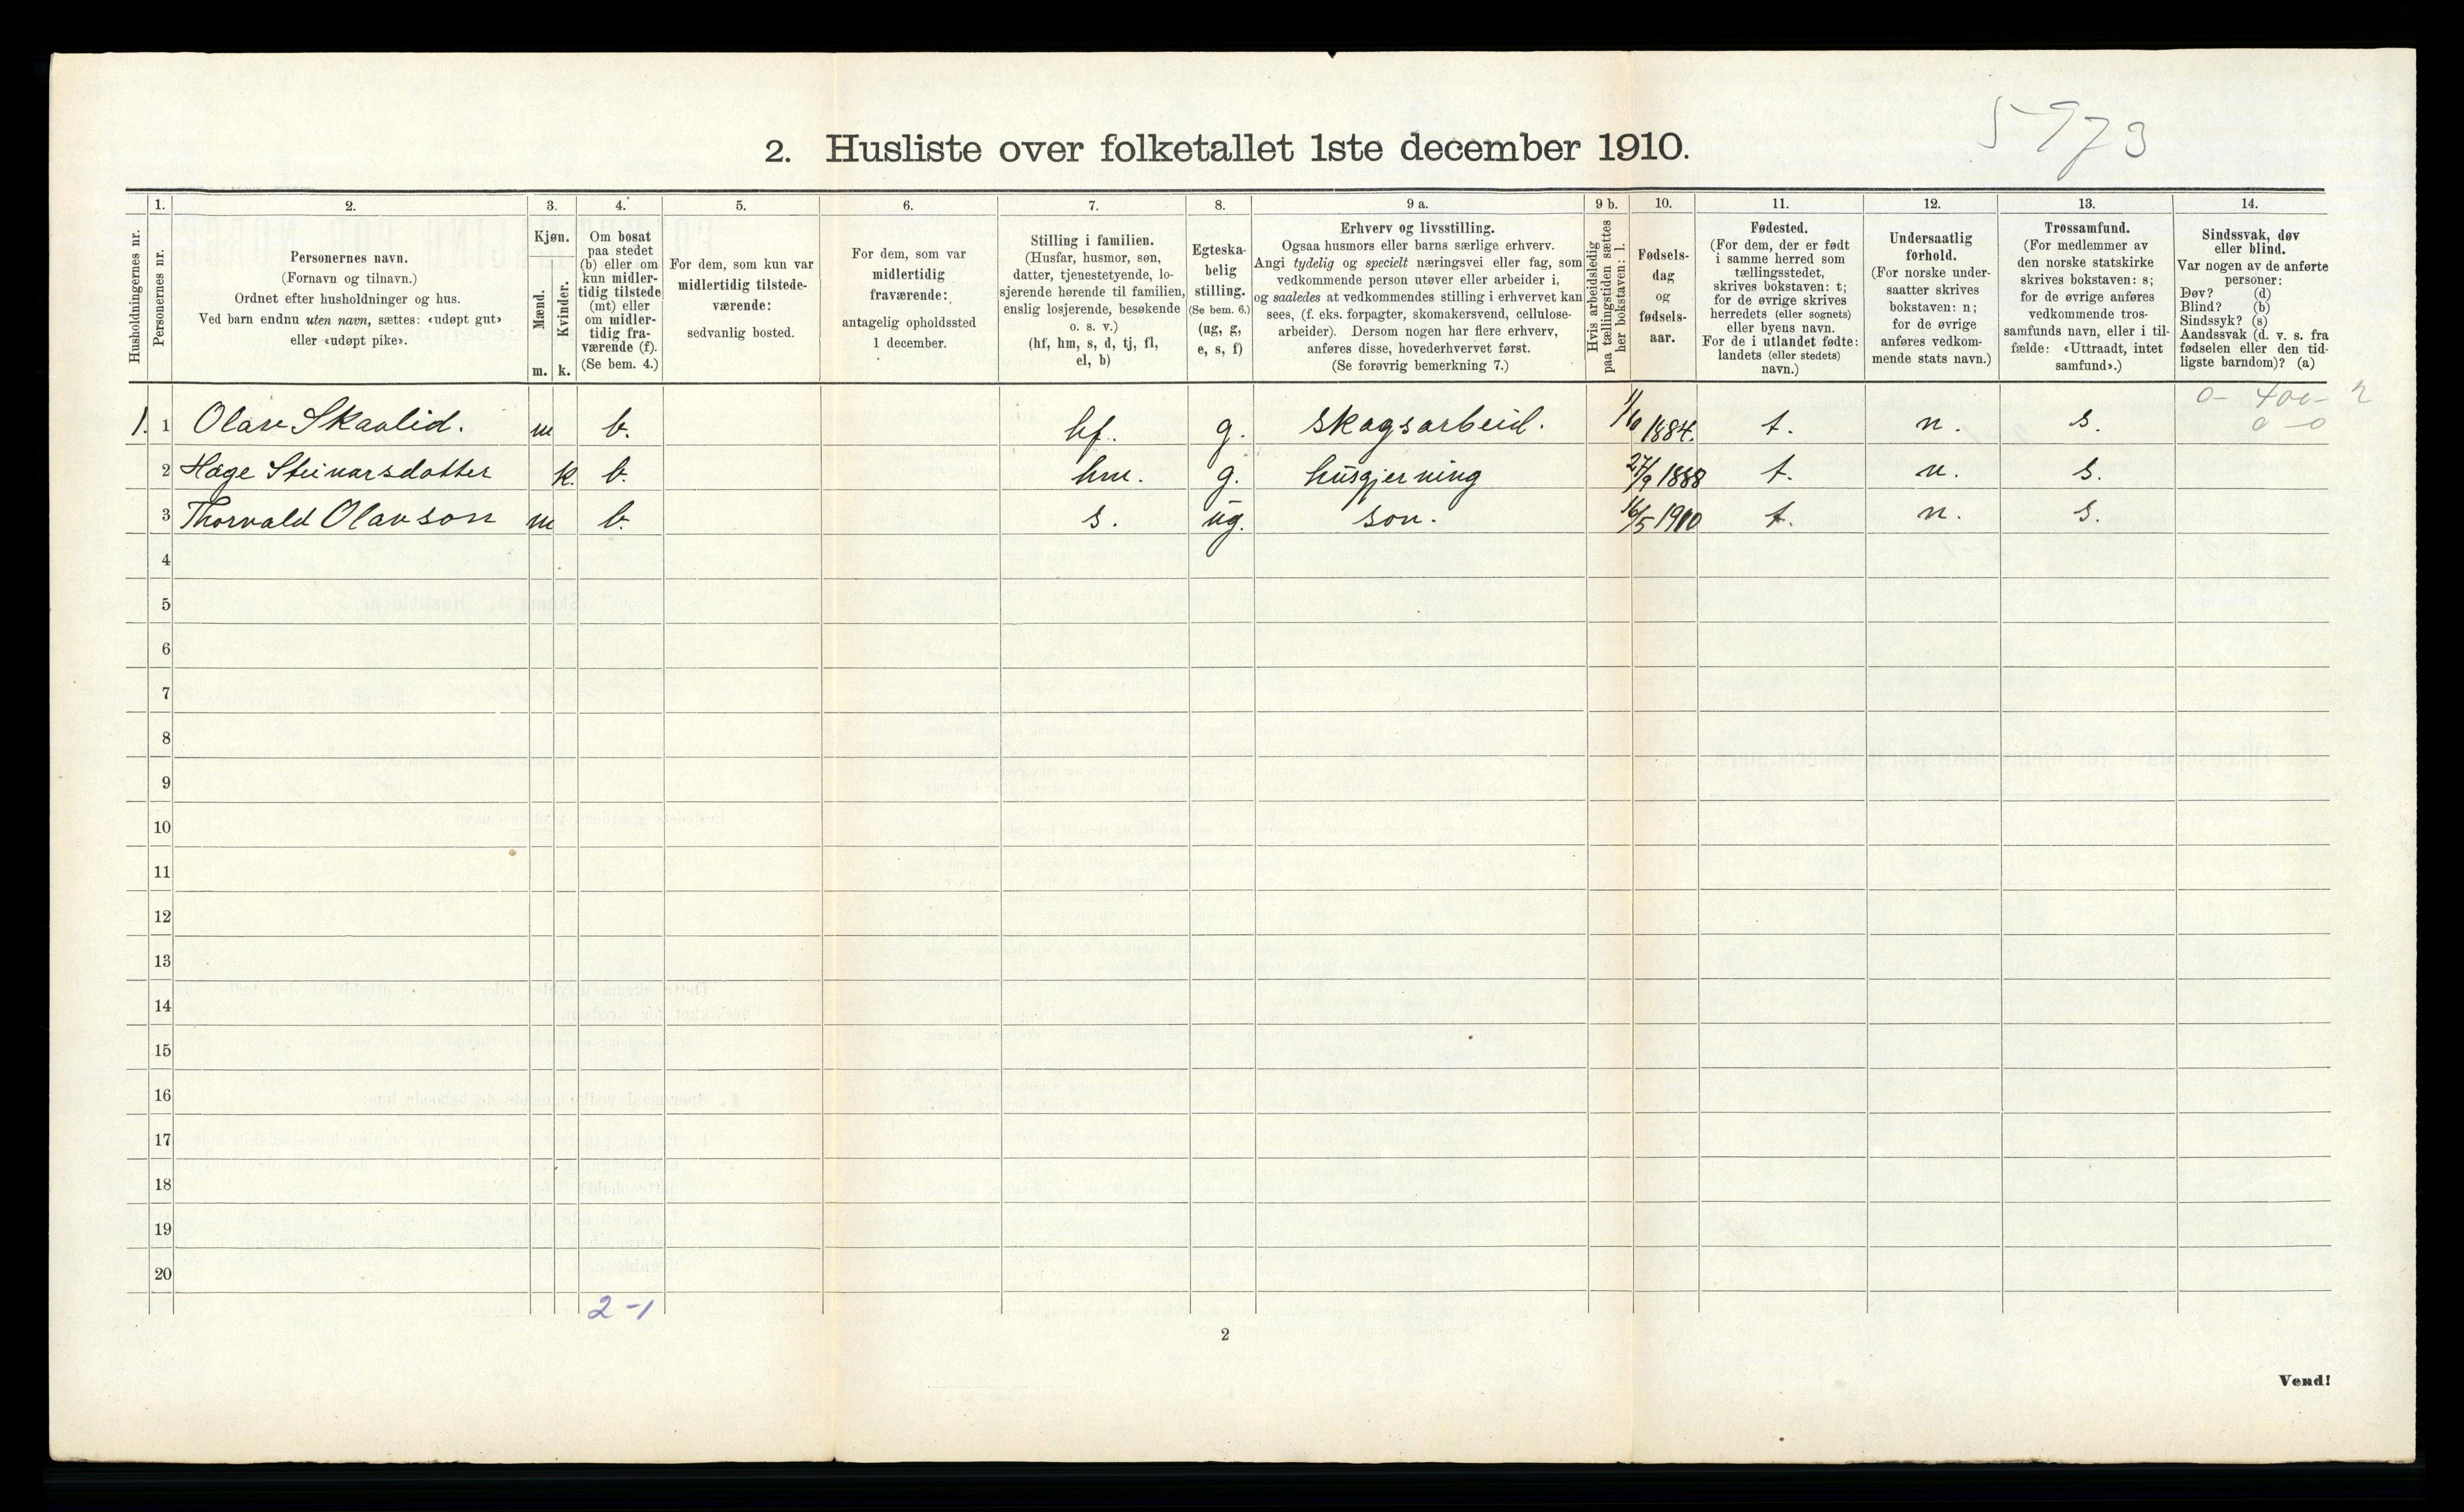 5973
2. Husliste over folketallet 1ste december 1910.
Husholdningernes nr.
1.
Personernes nr.
2.
Personernes navn.
(Fornavn og tilnavn.)
Ordnet efter husholdninger og hus.
Ved barn endnu uten navn, sættes: «udøpt gut»
eller «udøpt pike».
3.
Kjøn.
Mænd.
Kvinder.
m. k.
4.
Om bosat
paa stedet
(b) eller om
kun midler-
tidig tilstede
(mt) eller
om midler-
tidig fra-
værende (f).
(Se bem. 4.)
5.
For dem, som kun var
midlertidig tilstede-
værende:
sedvanlig bosted.
6.
For dem, som var
midlertidig
fraværende:
antagelig opholdssted
1 december.
7.
Stilling i familien.
(Husfar, husmor, søn,
datter, tjenestetyende, lo-
sjerende hørende til familien,
enslig losjerende, besøkende
o. s. v.)
(hf, hm, s, d, tj, fl,
el, b)
8.
Egteska-
belig
stilling.
(Se bem. 6.)
(ug, g,
e, s, f)
9 a.
Erhverv og livsstilling.
Ogsaa husmors eller barns særlige erhverv.
Angi tydelig og specielt næringsvei eller fag, som
vedkommende person utøver eller arbeider i,
og saaledes at vedkommendes stilling i erhvervet kan
sees, (f. eks. forpagter, skomakersvend, cellulose-
arbeider). Dersom nogen har flere erhverv,
anføres disse, hovederhvervet først.
(Se forøvrig bemerkning 7.)
9 b.
Hvis arbeidsledig
paa tællingstiden sættes
her bokstaven: l.
10.
Fødsels-
dag
og
fødsels-
aar.
11.
Fødested.
(For dem, der er født
i samme herred som
tællingsstedet,
skrives bokstaven: t;
for de øvrige skrives
herredets (eller sognets)
eller byens navn.
For de i utlandet fødte:
landets (eller stedets)
navn.)
12.
Undersaatlig
forhold.
(For norske under-
saatter skrives
bokstaven: n;
for de øvrige
anføres vedkom-
mende stats navn.)
13.
Trossamfund.
(For medlemmer av
den norske statskirke
skrives bokstaven: s;
for de øvrige anføres
vedkommende tros-
samfunds navn, eller i til-
fælde: «Uttraadt, intet
samfund».)
14.
Sindssvak, døv
eller blind.
Var nogen av de anførte
personer:
Døv? (d)
Blind? (b)
Sindssyk? (s)
Aandssvak (d. v. s. fra
fødselen eller den tid-
ligste barndom)? (a)
1. 1 Olav Skaalid. m b. hf. g. skogsarbeid. 1/10 1884. t. n. s. 0-0
2 Hæge Steinarsdotter k. b. hm. g. husgjerning 27/9 1888 t. n. s.
3 Thorvald Olavson m b. s. ug. son. 16/5 1910 t. n. s.
4
5
6
7
8
9
10
11
12
13
14
15
16
17
18
19
20
2-1
2
Vend!